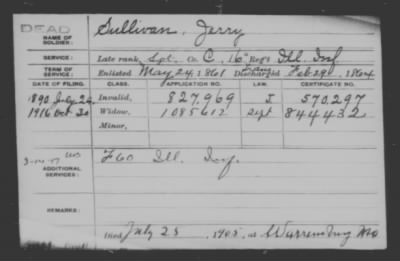 DEAD
NAME OF SOLDIER: Sullivan, Jerry
SERVICE: Late rank Sgt. Co. C, 16" Reg't Ill. Inf
TERM OF SERVICE: Enlisted May 24, 1861 Discharged Feb 29, 1864
DATE OF FILING. CLASS. APPLICATION NO. LAW. CERTIFICATE NO.
1890 July 22 Invalid, 827,969 J. 570,297
1916 Oct. 20 Widow, 1085612 Sept 844432
Minor,
ADDITIONAL SERVICES: F 60 Ill. Inf.
REMARKS:
Died July 25, 1905, at Warrensburg Mo